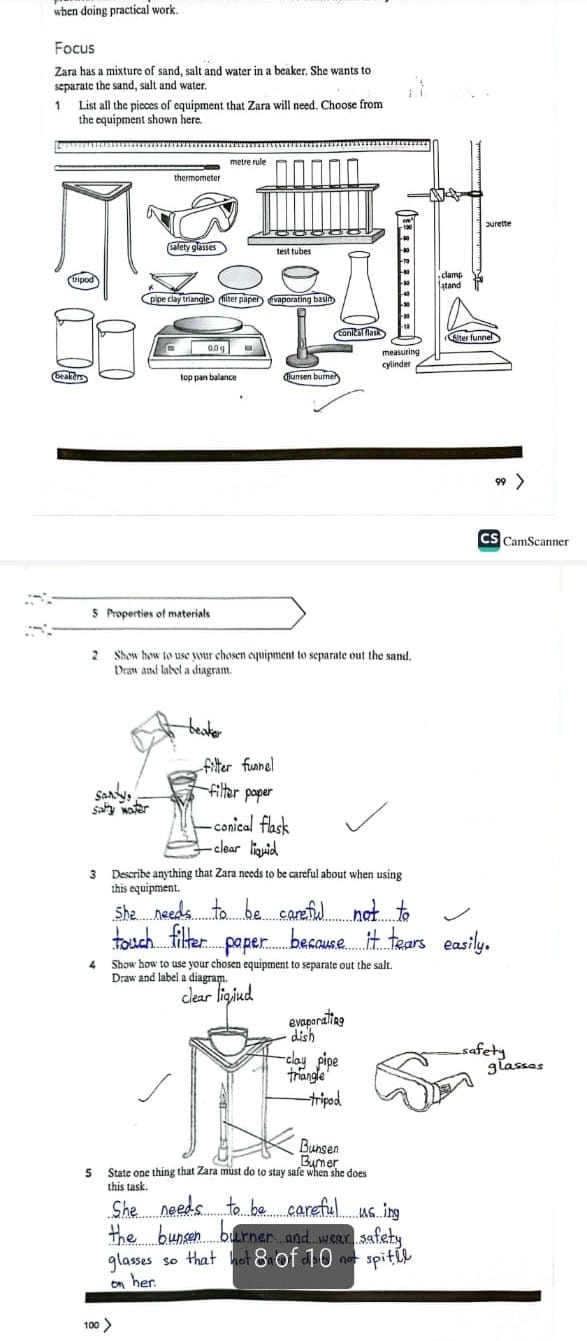 when doing practical work.
Focus
Zara has a mixture of sand, salt and water in a beaker. She wants to
separate the sand, salt and water.
1 List all the pieces of equipment that Zara will need. Choose from
the equipment shown here.
metre rule
thermometer
safety glasses
test tubes
burette
tripod
clamp
stand
pipe clay triangle
filter paper
evaporating basin
conical flask
filter funnel
0.0 g
measuring
cylinder
beakers
top pan balance
Bunsen burner
99
CS CamScanner
5 Properties of materials
2 Show how to use your chosen equipment to separate out the sand.
Draw and label a diagram.
beaker
filter funnel
filter paper
Sandy,
salty water
conical flask
clear liquid
3 Describe anything that Zara needs to be careful about when using
this equipment.
She needs to be careful not to
touch filter paper because it tears easily.
4 Show how to use your chosen equipment to separate out the salt.
Draw and label a diagram.
clear liqiud
evaporating
dish
clay pipe
triangle
tripod
safety
glasses
Bunsen
Burner
5 State one thing that Zara must do to stay safe when she does
this task.
She needs to be careful using
the bunsen burner and wear safety
glasses so that hot not
on her.
8 of 10
100